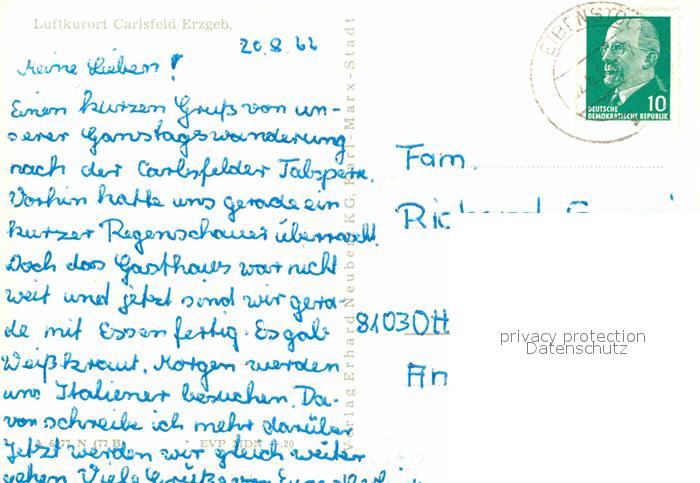 Luftkurort Carlsfeld/Erzgeb.
20.8.62
Meine Lieben!
Einen kurzen Gruß von un-
serer Ganztagswanderung
nach der Carlsfelder Talsperre.
Vorhin hatte uns gerade ein
kurzer Regenschauer überrascht.
Doch das Gasthaus war nicht
weit und jetzt sind wir gera-
de mit Essen fertig. Es gab
Weißkraut. Morgen werden
uns Italiener besuchen. Da-
von schreibe ich mehr darüber
Jetzt werden wir gleich weiter
gehen Viele Grüße von
N (77 B) EVP MDN 0.20
Verlag Erhard Neubert KG, Karl-Marx-Stadt
EIBENSTOCK
10
DEUTSCHE
DEMOKRATISCHE REPUBLIK
Fam.
8103 Ott
An
privacy protection
Datenschutz